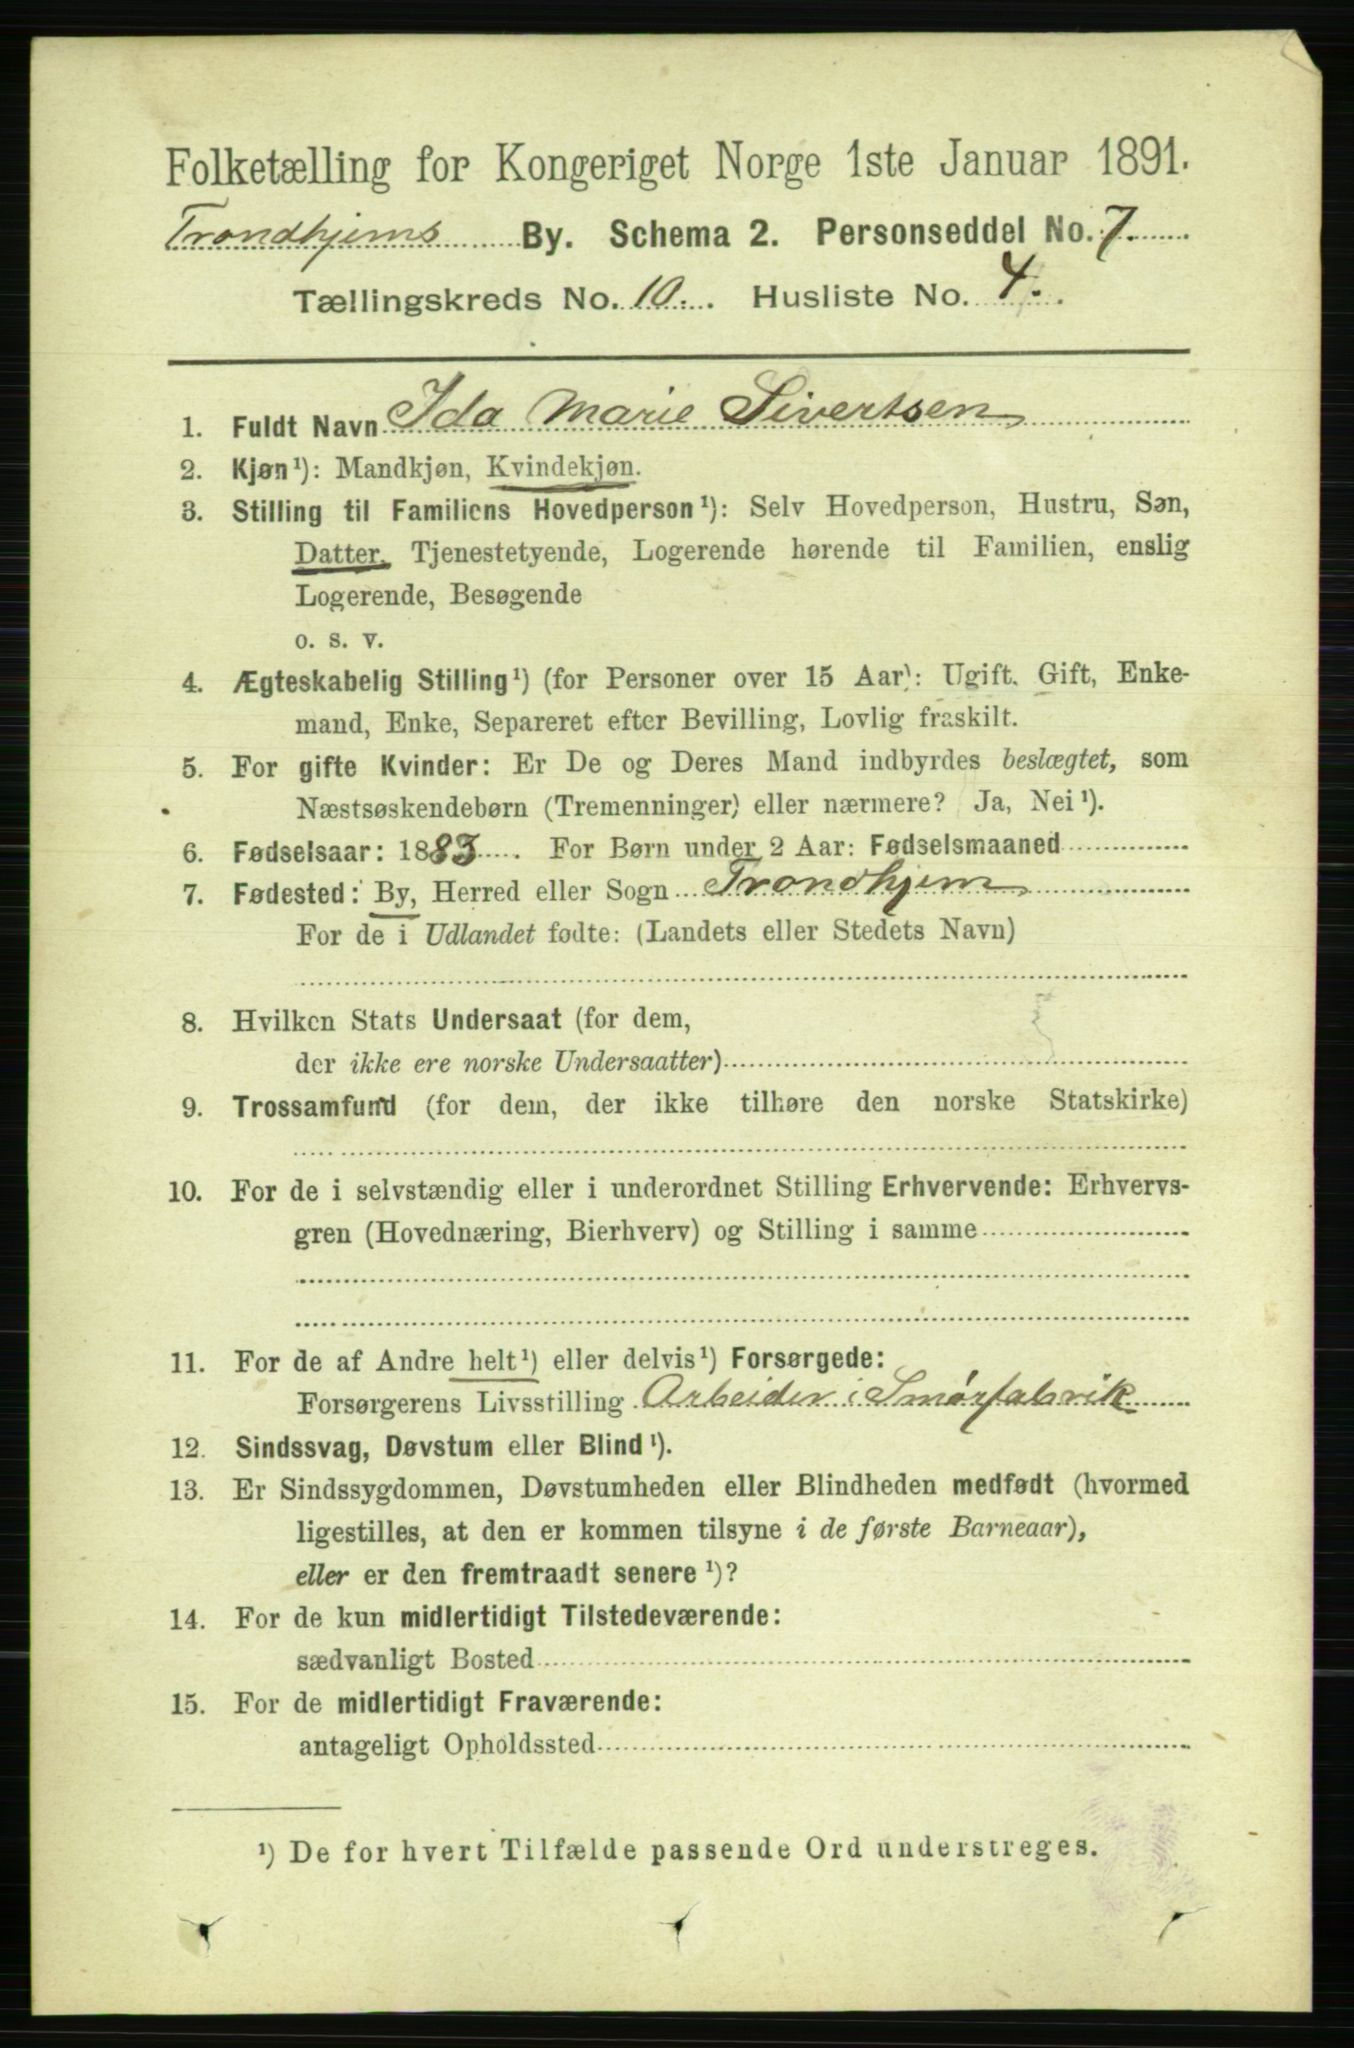 Folketælling for Kongeriget Norge 1ste Januar 1891.
Trondhjems By. Schema 2. Personseddel No. 7.
Tællingskreds No. 10. Husliste No. 4.
1. Fuldt Navn Ida Marie Sivertsen
2. Kjøn¹): Mandkjøn, Kvindekjøn.
3. Stilling til Familiens Hovedperson¹): Selv Hovedperson, Hustru, Søn,
Datter, Tjenestetyende, Logerende hørende til Familien, enslig
Logerende, Besøgende
o. s. v.
4. Ægteskabelig Stilling¹) (for Personer over 15 Aar): Ugift, Gift, Enke-
mand, Enke, Separeret efter Bevilling, Lovlig fraskilt.
5. For gifte Kvinder: Er De og Deres Mand indbyrdes beslægtet, som
Næstsøskendebørn (Tremenninger) eller nærmere? Ja, Nei¹).
6. Fødselsaar: 1883. For Børn under 2 Aar: Fødselsmaaned
7. Fødested: By, Herred eller Sogn Trondhjem
For de i Udlandet fødte: (Landets eller Stedets Navn)
8. Hvilken Stats Undersaat (for dem,
der ikke ere norske Undersaatter)
9. Trossamfund (for dem, der ikke tilhøre den norske Statskirke)
10. For de i selvstændig eller i underordnet Stilling Erhvervende: Erhvervs-
gren (Hovednæring, Bierhverv) og Stilling i samme
11. For de af Andre helt¹) eller delvis¹) Forsørgede:
Forsørgerens Livsstilling Arbeider i Smørfabrik
12. Sindssvag, Døvstum eller Blind¹).
13. Er Sindssygdommen, Døvstumheden eller Blindheden medfødt (hvormed
ligestilles, at den er kommen tilsyne i de første Barneaar),
eller er den fremtraadt senere¹)?
14. For de kun midlertidigt Tilstedeværende:
sædvanligt Bosted
15. For de midlertidigt Fraværende:
antageligt Opholdssted
¹) De for hvert Tilfælde passende Ord understreges.